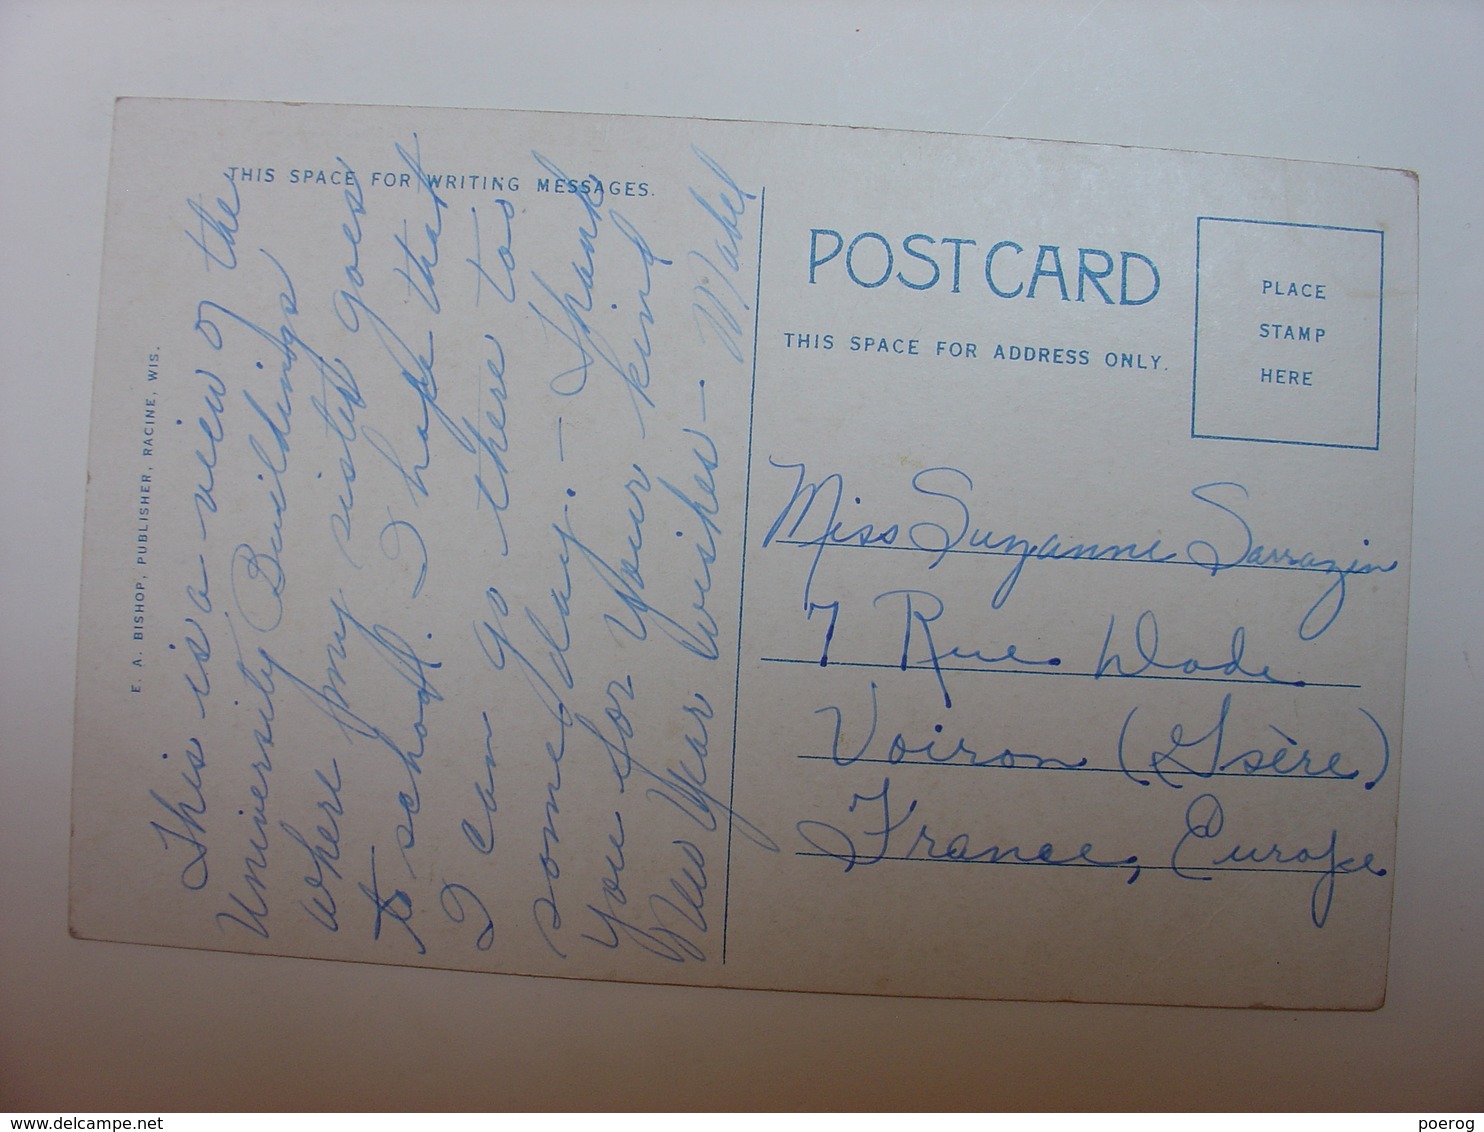 THIS SPACE FOR WRITING MESSAGES.
This is a view of the
University Buildings
where my sister goes
to school. I hope that
I can go there too
some day. — Thank
you for your kind
New Year Wishes — Mabel
E. A. BISHOP, PUBLISHER, RACINE, WIS.
POST CARD
THIS SPACE FOR ADDRESS ONLY.
PLACE
STAMP
HERE
Miss Suzanne Sarrazin
7 Rue Dode
Voiron (Isère)
France, Europe
delcampe.net
poerog